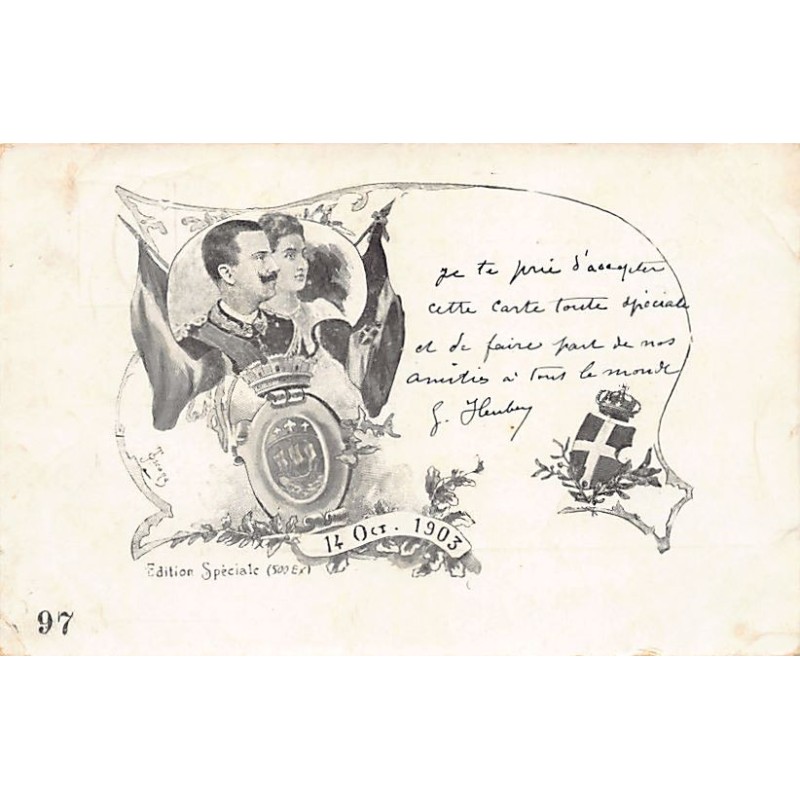 je te prie d'accepter
cette carte toute spéciale
et de faire part de nos
amitiés à tout le monde
G.
14 Oct. 1903
Edition Spéciale (500 Ex)
97